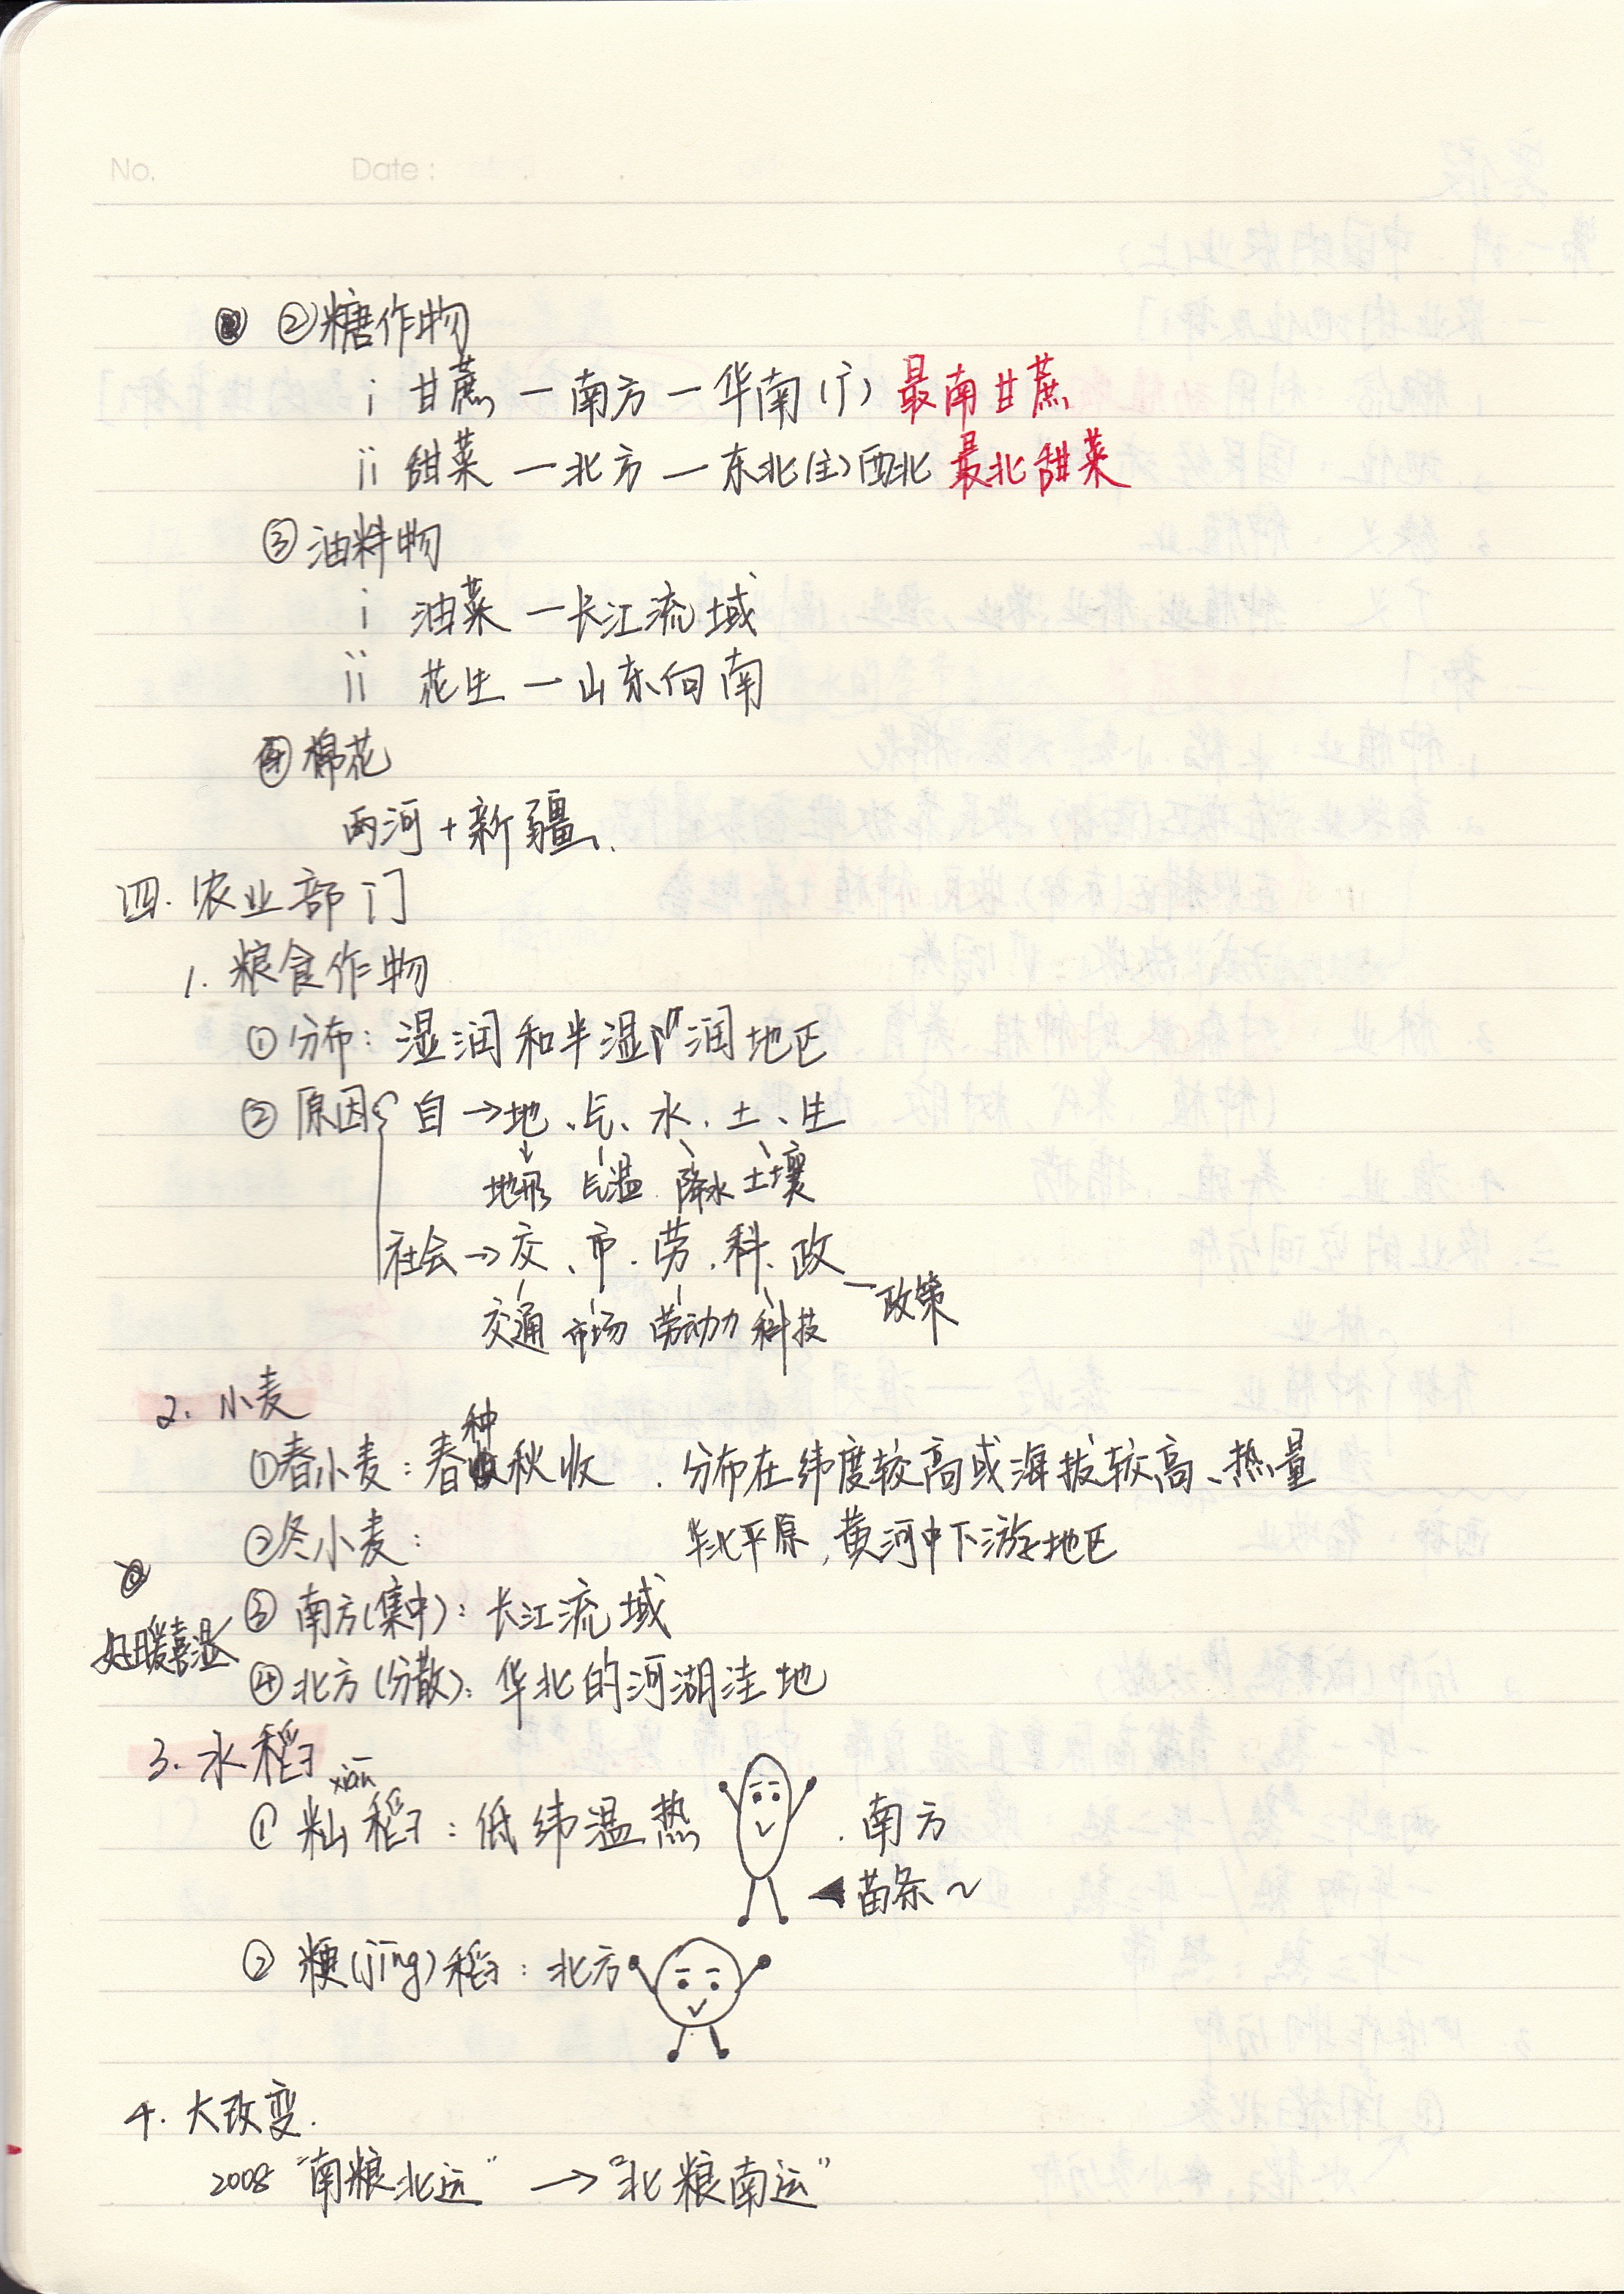 No. Date:
②糖作物
i 甘蔗 — 南方 — 华南(广) 最南甘蔗
ii 甜菜 — 北方 — 东北(主)西北 最北甜菜
③油料物
i 油菜 — 长江流域
ii 花生 — 山东向南
④棉花
两河+新疆.
四.农业部门
1.粮食作物
①分布:湿润和半湿润地区
②原因 自→地、气、水、土、生
地形 气温 降水 土壤
社会→交、市、劳、科、政
政策
交通 市场 劳动力 科技
2.小麦
种
①春小麦:春秋收 .分布在纬度较高或海拔较高、热量
②冬小麦: 华北平原,黄河中下游地区
③南方(集中):长江流域
好暖喜湿
④北方(分散):华北的河湖洼地
3.水稻
xiān
①籼稻:低纬温热 .南方
苗条~
②粳(jīng)稻:北方
4.大改变.
2008 "南粮北运" →"北粮南运"